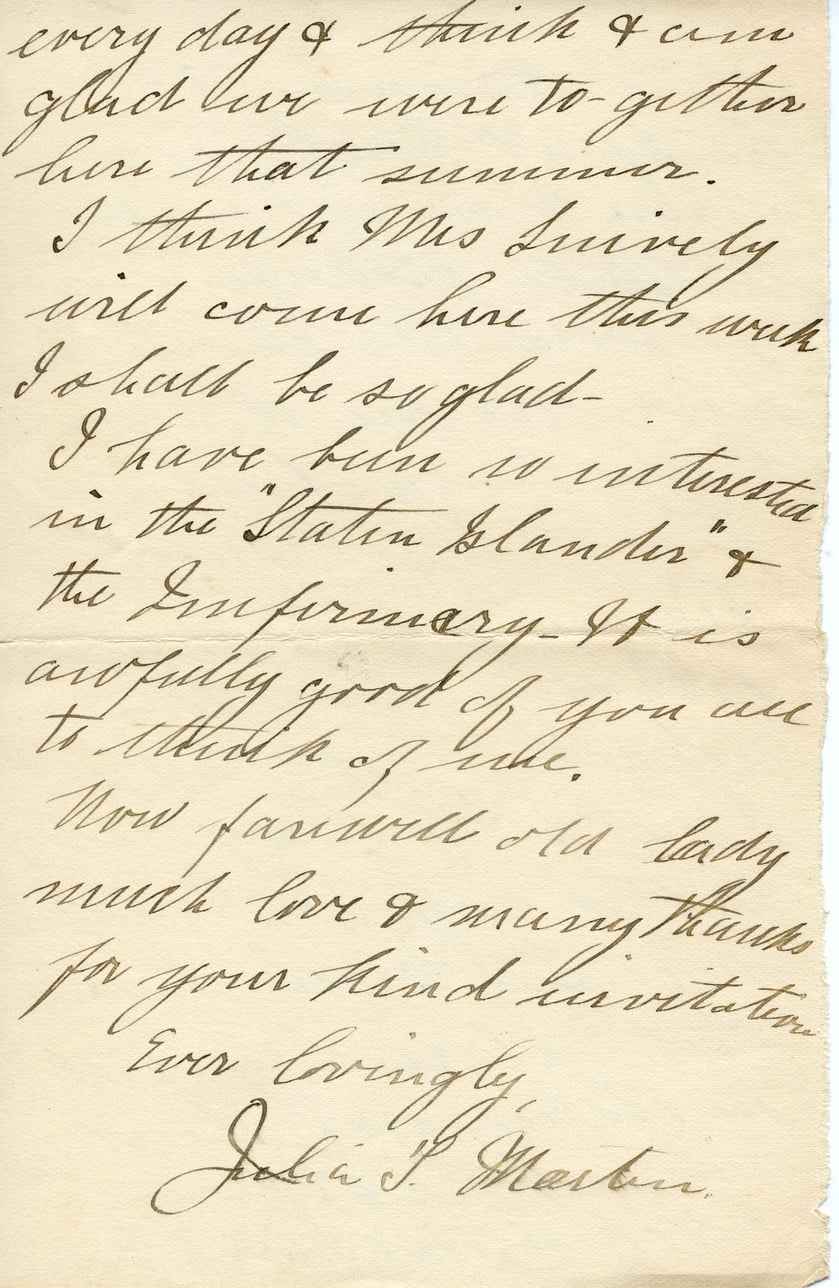 every day & think & am
glad we were to-gether
here that summer.
I think Mrs Snively
will come here this week
I shall be so glad-
I have been so interested
in the "Staten Islander" &
the Imfirmary - It is
awfully good of you all
to think of me.
Now farewell old lady
much love & many thanks
for your kind invitation
Ever lovingly,
Julia T. Marten.